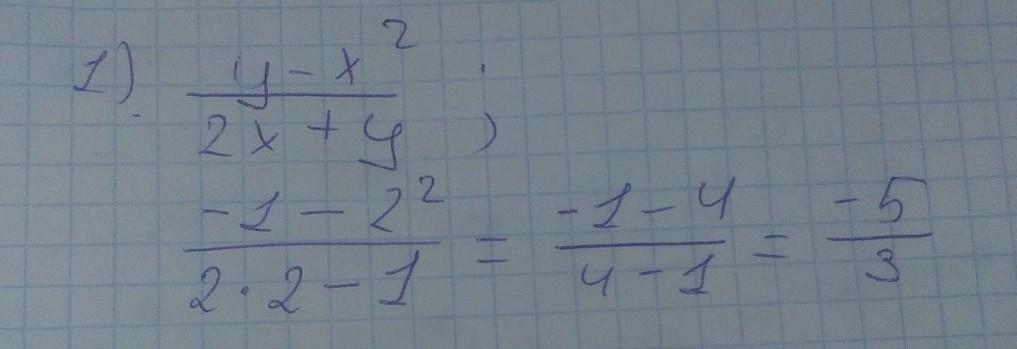 1) (y - x²)/(2x + y) ;
(-1 - 2²)/(2·2 - 1) = (-1 - 4)/(4 - 1) = (-5)/3